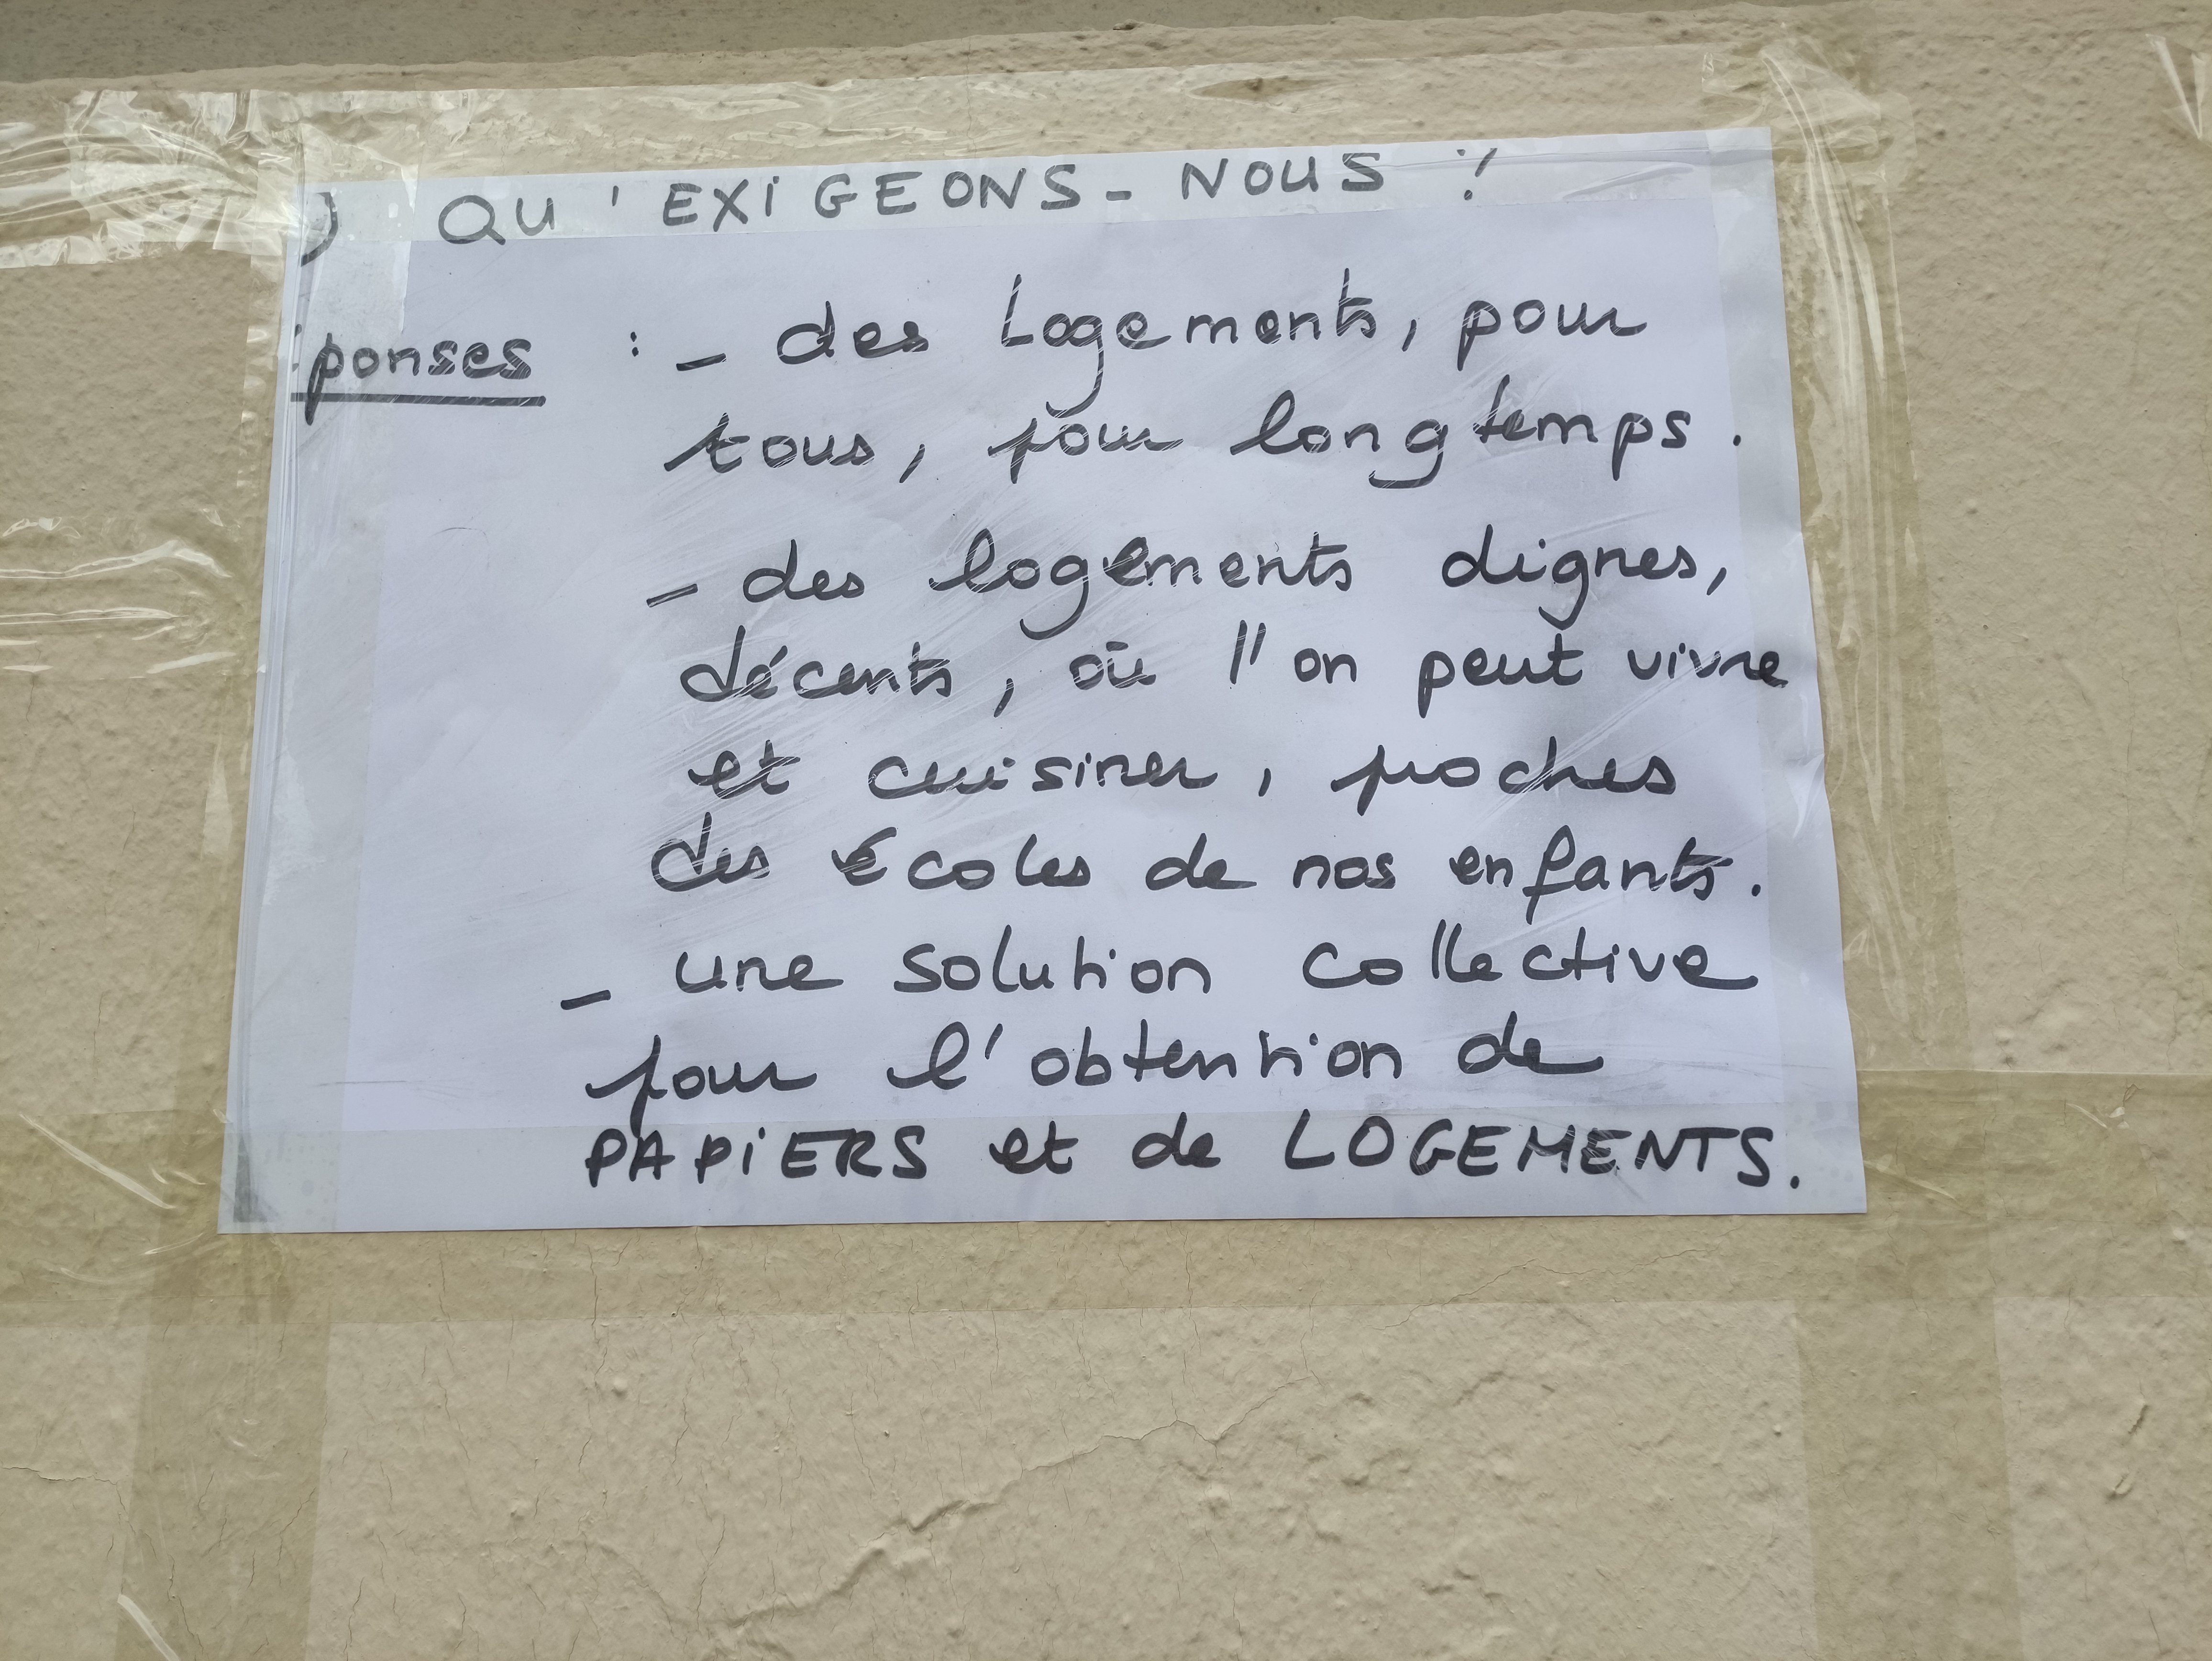 ) QU'EXIGEONS-NOUS ?
ponses : - des Logements, pour
tous, pour longtemps.
- des logements dignes,
décents, où l''on peut vivre
et cuisiner, proches
des écoles de nos enfants.
- une solution collective
pour l'obtention de
PAPIERS et de LOGEMENTS.